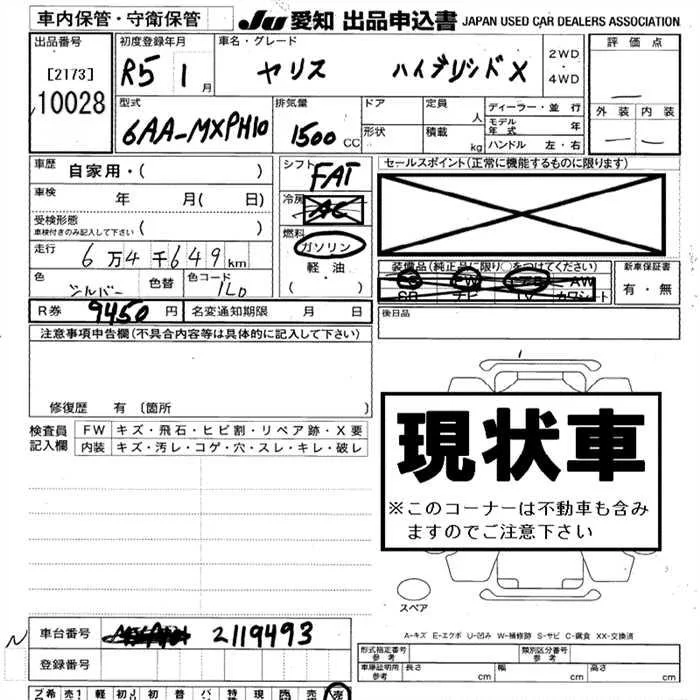 車内保管・守衛保管 JU 愛知 出品申込書 JAPAN USED CAR DEALERS ASSOCIATION
出品番号 初度登録年月 車名・グレード 2WD・4WD 評価点
[2173] 10028 R5 1月 ヤリス ハイブリッド X
型式 排気量 ドア 定員 人 ディーラー・並行 外装 内装
6AA-MXPH10 1500cc 形状 積載 kg モデル年式 年
ハンドル 左・右
車歴 自家用・( ) シフト FAT セールスポイント(正常に機能するものに限ります)
車検 年 月( 日) 冷房 AC
受検形態 車検付きのみ記入して下さい ( ) 燃料 ガソリン
走行 6万4千649km 軽油
装備品(純正品に限り○をつけてください) 新車保証書
色 シルバー 色替 色コード 1L0 ・( )
SR ナビ TV カワシート AW PW 有・無
R券 9450円 名変通知期限 月 日 後日品
注意事項申告欄(不具合内容等は具体的に記入して下さい)
修復歴 有〔箇所 〕
現状車
※このコーナーは不動車も含み
ますのでご注意下さい
検査員記入欄 FW キズ・飛石・ヒビ割・リペア跡・X要
内装 キズ・汚レ・コゲ・穴・スレ・キレ・破レ
スペア
A-キズ E-エクボ U-凹み W-補修跡 S-サビ C-腐食 XX-交換済
車台番号 2119493
登録番号
形式指定番号 参考 類別区分番号 参考
車庫証明用 参考 長さ cm 幅 cm 高さ cm